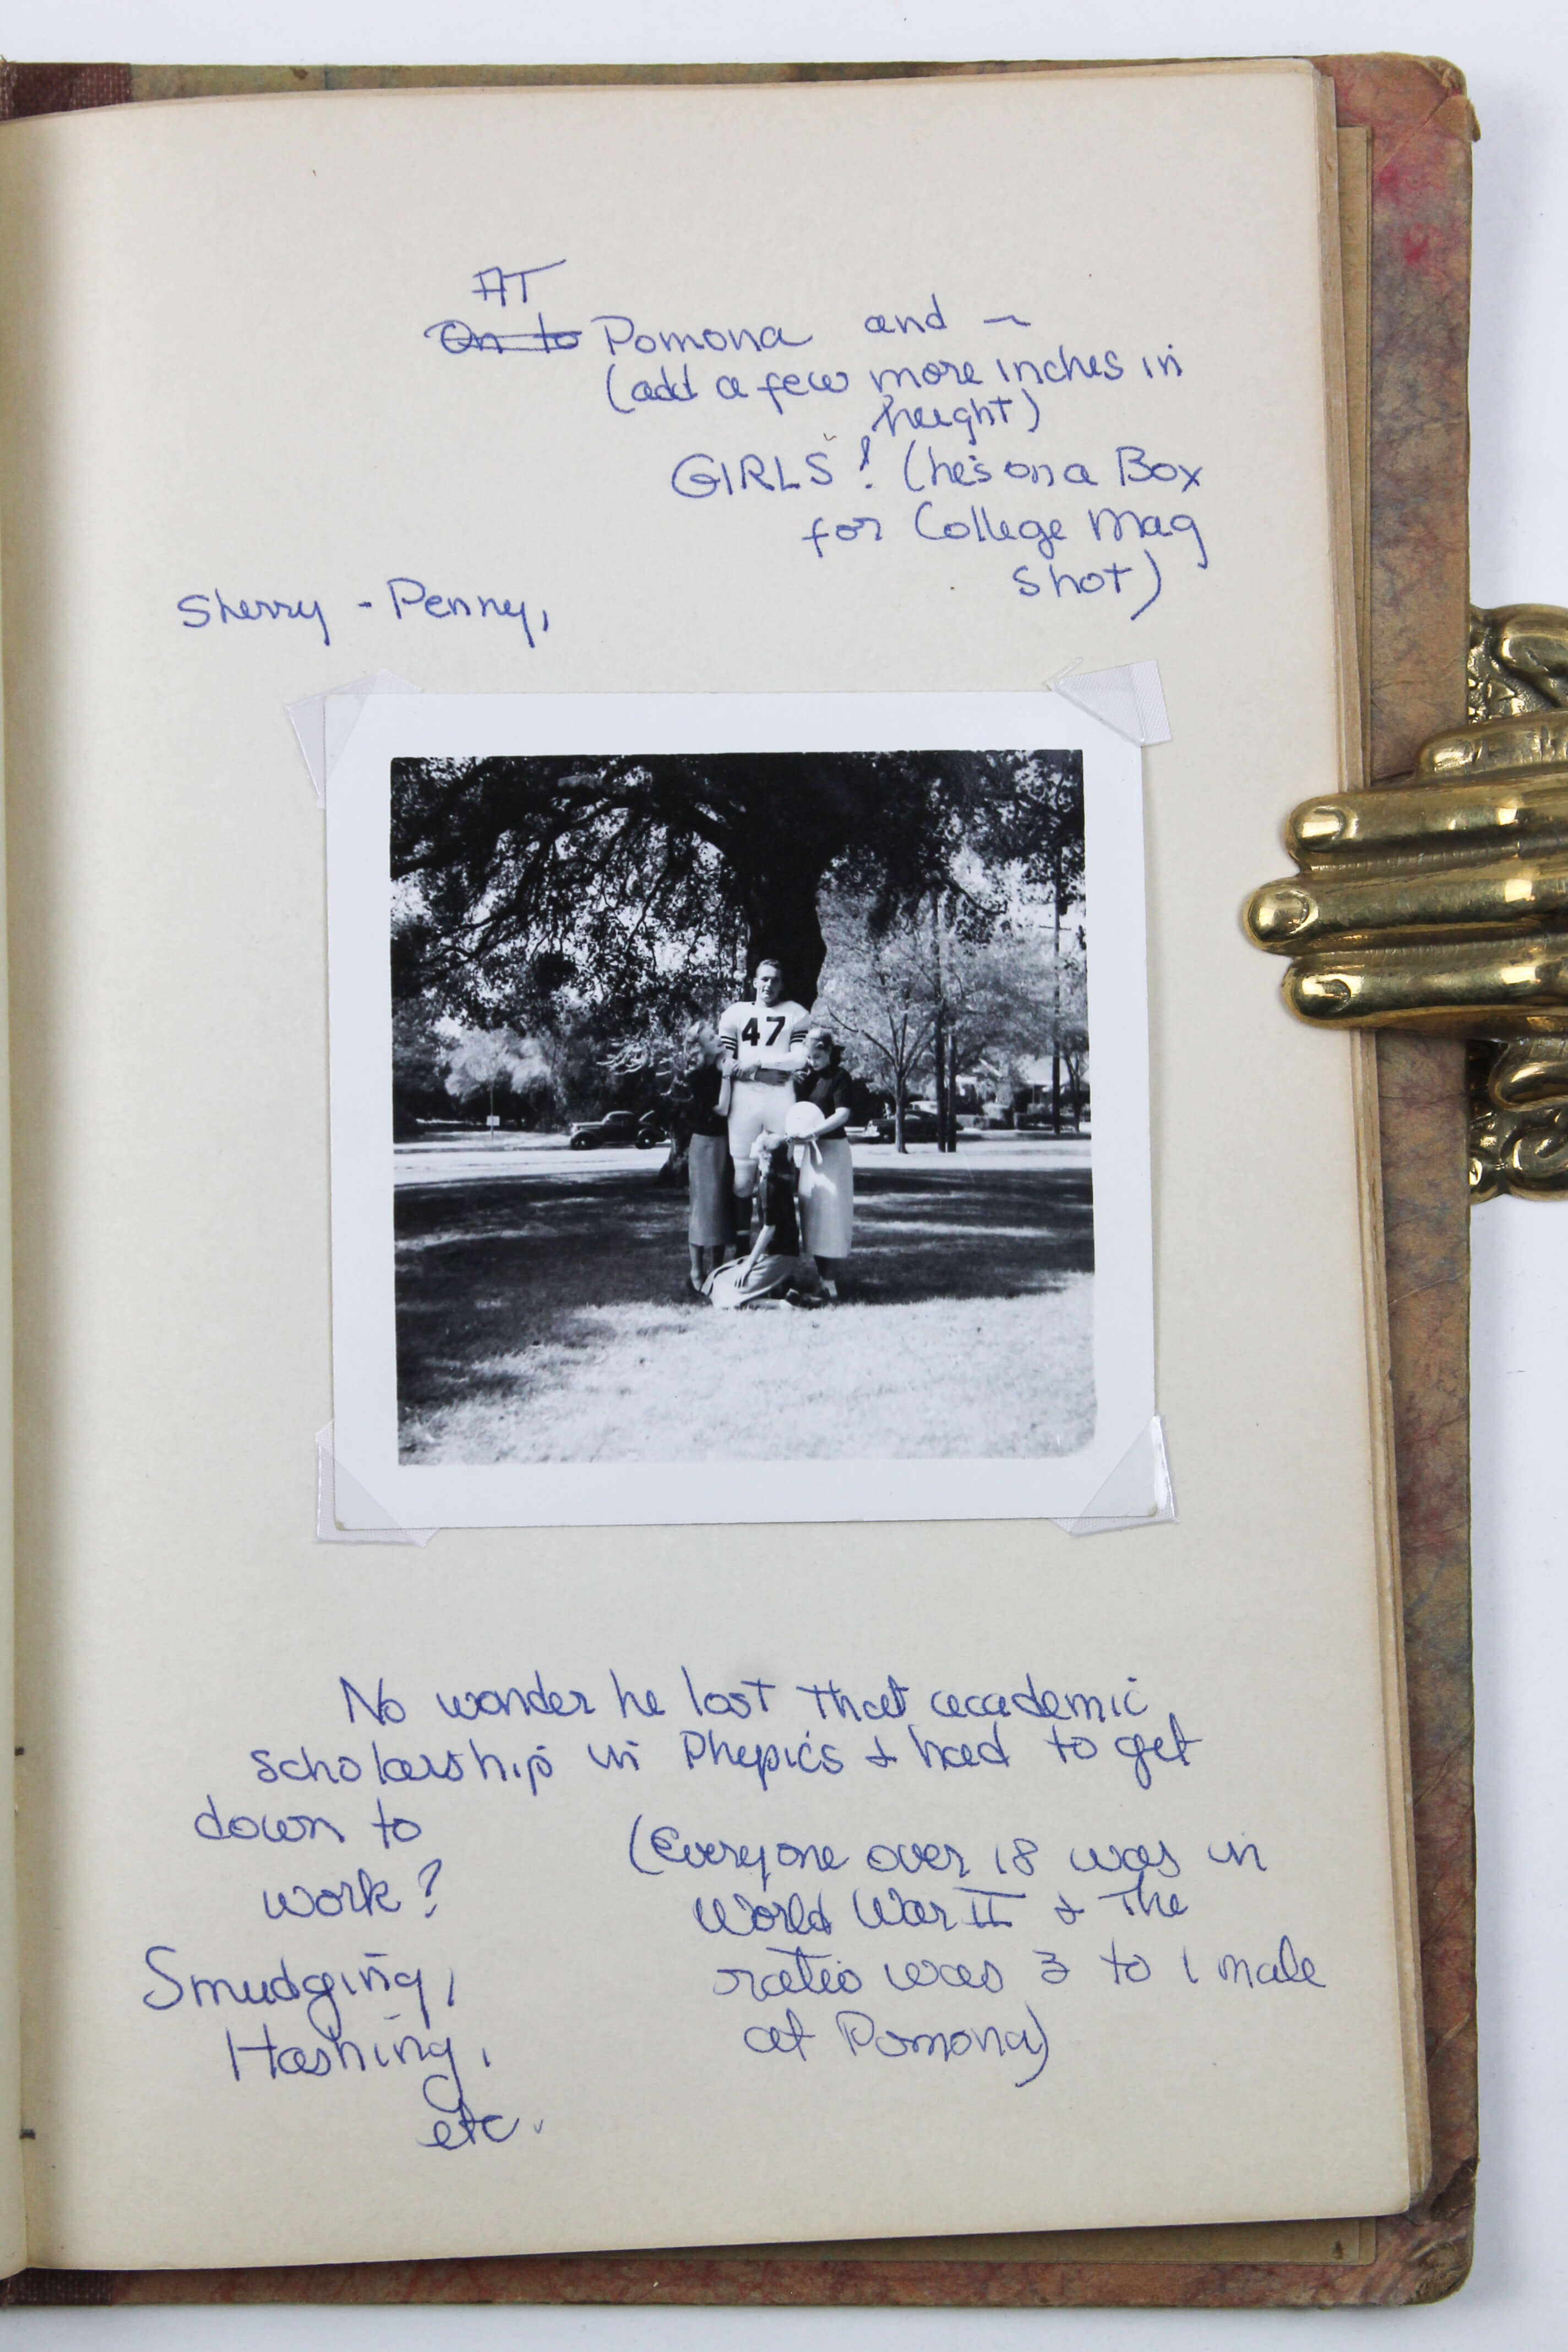 AT
On to Pomona and ~
(add a few more inches in
height)
GIRLS! (he's on a Box
for College Mag
shot)
Sherry - Penny,
47
No wonder he lost that academic
scholarship in Phepics & had to get
down to
work?
(Everyone over 18 was in
World War II & the
ratio was 3 to 1 male
at Pomona)
Smudging,
Hashing,
etc.